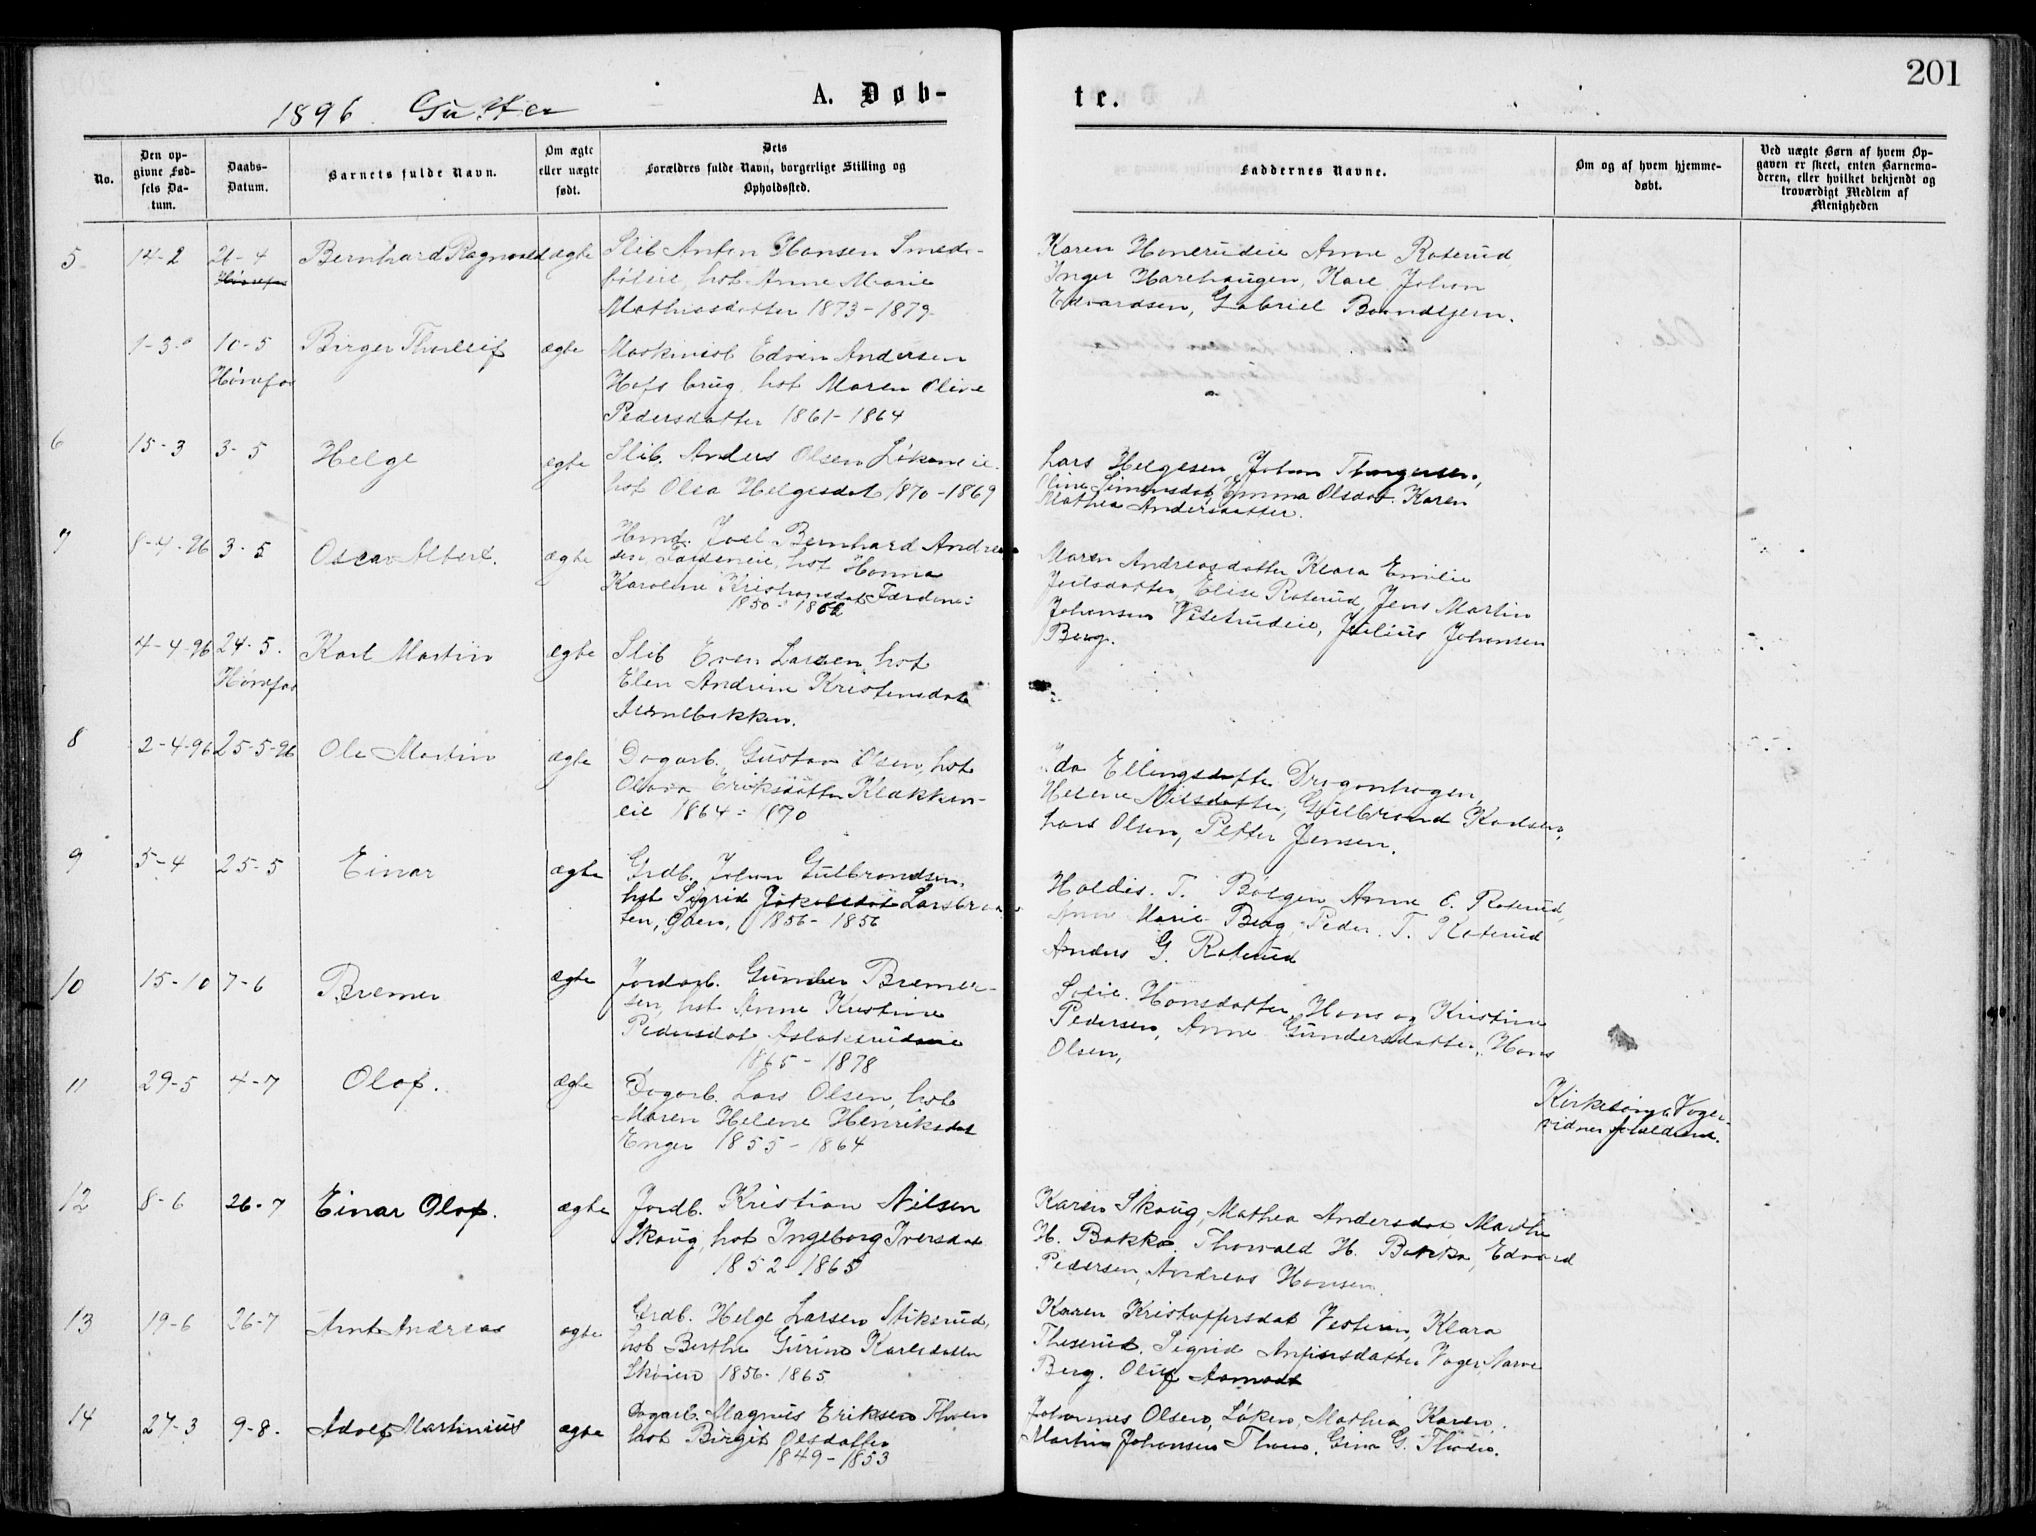 201
1896. Gutter
A. Døb-
te.
No.
Den op-
givne Fød-
sels Da-
tum.
Daabs-
Datum.
Barnets fulde Navn.
Om ægte
eller uægte
født.
Dets
Forældres fulde Navn, borgerlige Stilling og
Opholdssted.
Faddernes Navne.
Om og af hvem hjemme-
døbt.
Ved uægte Børn af hvem Op-
gaven er skeet, enten Barnemo-
deren, eller hvilket bekjendt og
troværdigt Medlem af
Menigheden
5 14-2 21-4 Bernhard Ragnvald ægte Slib Anton Hansen Smeds-
Hønefos
eie, hst Anne Marie
Mathiasdatter 1873-1879
Karen Honerudeie Anne Roterud
Inger Harehaugen, Karl Johan
Edvardsen, Gabriel Bånntjern.
1-3 10-5 Birger Thorleif ægte Maskinist Edvin Andersen
Hønefos
Hofs brug, hst Maren Oline
Pedersdatter 1861-1864
6 15-3 3-5 Helge ægte Slib. Anders Olsen Løkeneie
hst Olea Helgesdat 1870-1869
Lars Helgesen, Johan
Oline Simensdat, Emma Olsdat. Karen
Mathea Andersdatter.
7 8-4-96 3-5 Oscar Albert. ægte Hmd. Joel Bernhard Andrea-
sen, hst Hanna
Karoline Kristiansdat Færdenei
1850-1862
Maren Andreasdatter Klara Emilie
Joelsdatter, Elise Roterud, Jens Martin
Johansen Viseterudeie, Julius Johansen
Berg.
4-4-96 24-5. Karl Martin ægte Slib Even Larsen, hst
Hønefos
Elen Andrine Kristensdat
8 2-4-96 25-5-96 Ole Martin ægte Dagarb. Gustav Olsen, hst
Olava Eriksdatter Klækken-
eie 1864-1870
Ida Ellingsdatter Dragonhagen,
Helene Nilsdatter, Gulbrand Karlsen,
Lars Olsen, Petter Jensen.
9 5-4 25-5 Einar ægte Grdb. Johan Gulbrandsen,
hst Sigrid Larsbraa-
ten, 1856-1856
Haldis. T. Anne O. Roterud,
Anne Marie Berg, Peder. T. Roterud
Anders G. Roterud
10 15-10 7-6 Bremer ægte Jordarb. Gunder Bremer-
sen, hst Anne Kristine
Pedersdat Aslaksrudeie
1865-1878
Hansdatter, Hans og Kristine
Pedersen, Anne Gundersdatter, Hans
Olsen,
11 29-5 4-7 Olaf. ægte Dagarb. Lars Olsen, hst
Maren Helene Henriksdat
Enger 1855-1864
12 8-6 26-7 Einar Olaf. ægte Jordb. Kristian Nilsen
Skaug, hst Ingeborg Iversdat
1852-1865
Karen Skaug, Mathea Andersdat, Marthe
H. Bakka. Thorvald H. Bakka, Edvard
Pedersen, Andreas Hansen.
13 19-6 26-7 Arnt Andreas ægte Grdb. Helge Larsen Stiksrud,
hst Berthe Gurine Karlsdatter
Skøien 1856-1865
Karen Kristoffersdat Vestern, Klara
Sigrid Anfinsdatter Vager,
Berg. Oluf Aamodt
14 27-3 9-8. Adolf Martinius ægte Dagarb. Magnus Eriksen Thoen
hst Birgit Olsdatter
1849-1853
Johannes Olsen, Løken, Mathea Karen,
Martin Johansen Thoen, Gina G. Thoen.